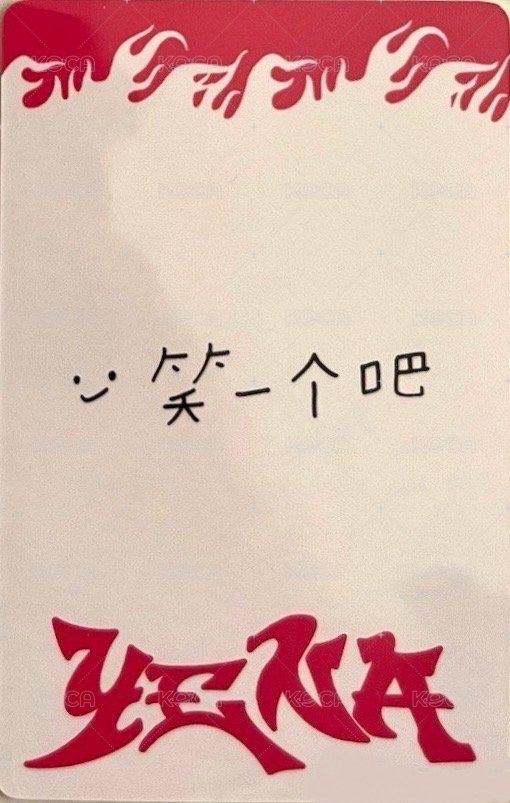 笑一个吧
YENA